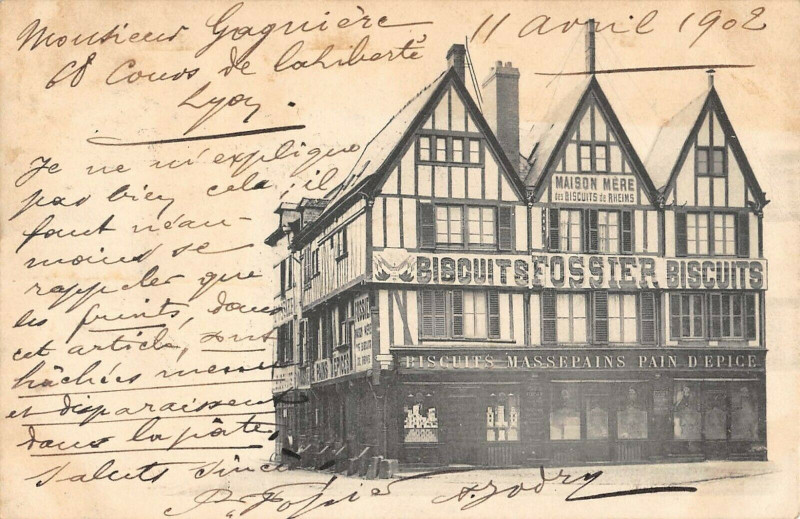 Monsieur Gagnière
68 Cours de la Liberté
Lyon.
11 avril 1902
Je ne m'explique
pas bien cela; il
faut néan-
moins se
rappeler que
les fruits, dans
cet article, sont
hâchées menus
et disparaissent
dans la pâte,
Saluts sincères
P. Fossier
MAISON MÈRE
des BISCUITS de RHEIMS
BISCUITS FOSSIER BISCUITS
BISCUITS MASSEPAINS PAIN D'EPICE
FOSSIER
MAISON MÈRE